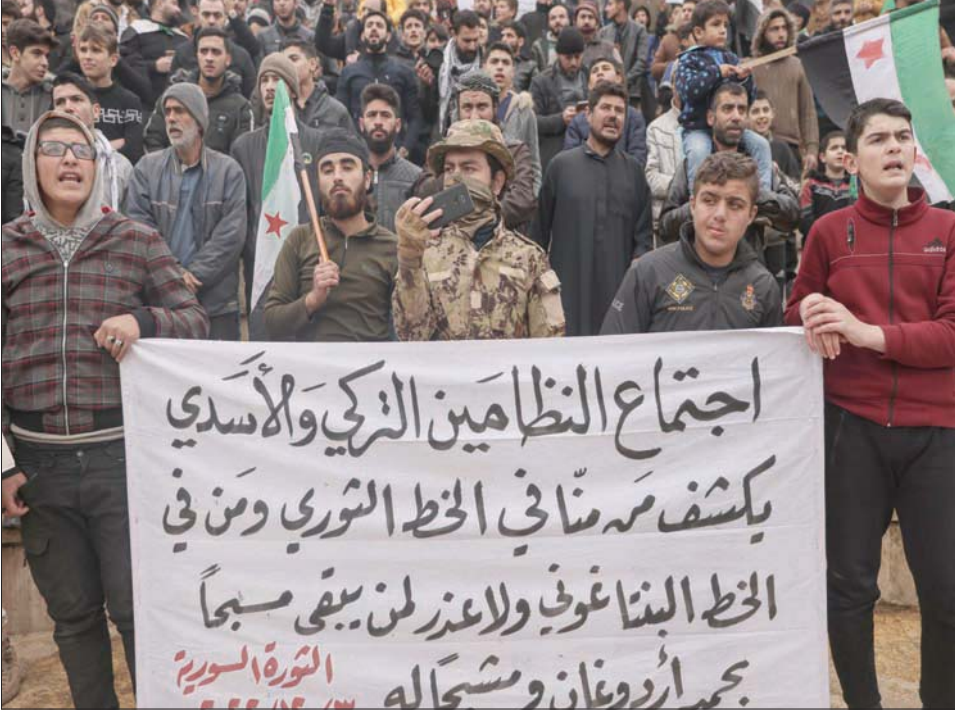 اجتماع النظامين التركي وَالأَسَدي
يكشف مَن منّا في الخط الثوري ومَن في
الخط البنتاغوني ولا عذر لمن يبقى مسبحاً
بحمد أردوغان ومشبحاً له
الثورة السورية
adidas